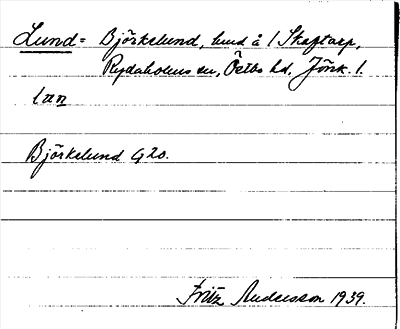 Lund = Björkelund, hmd å 1 Skaftarp,
Rydaholms sn, Östbo hd, Jönk. l.
lɯn
Björkelund G20.
Fritz Andersson 1939.